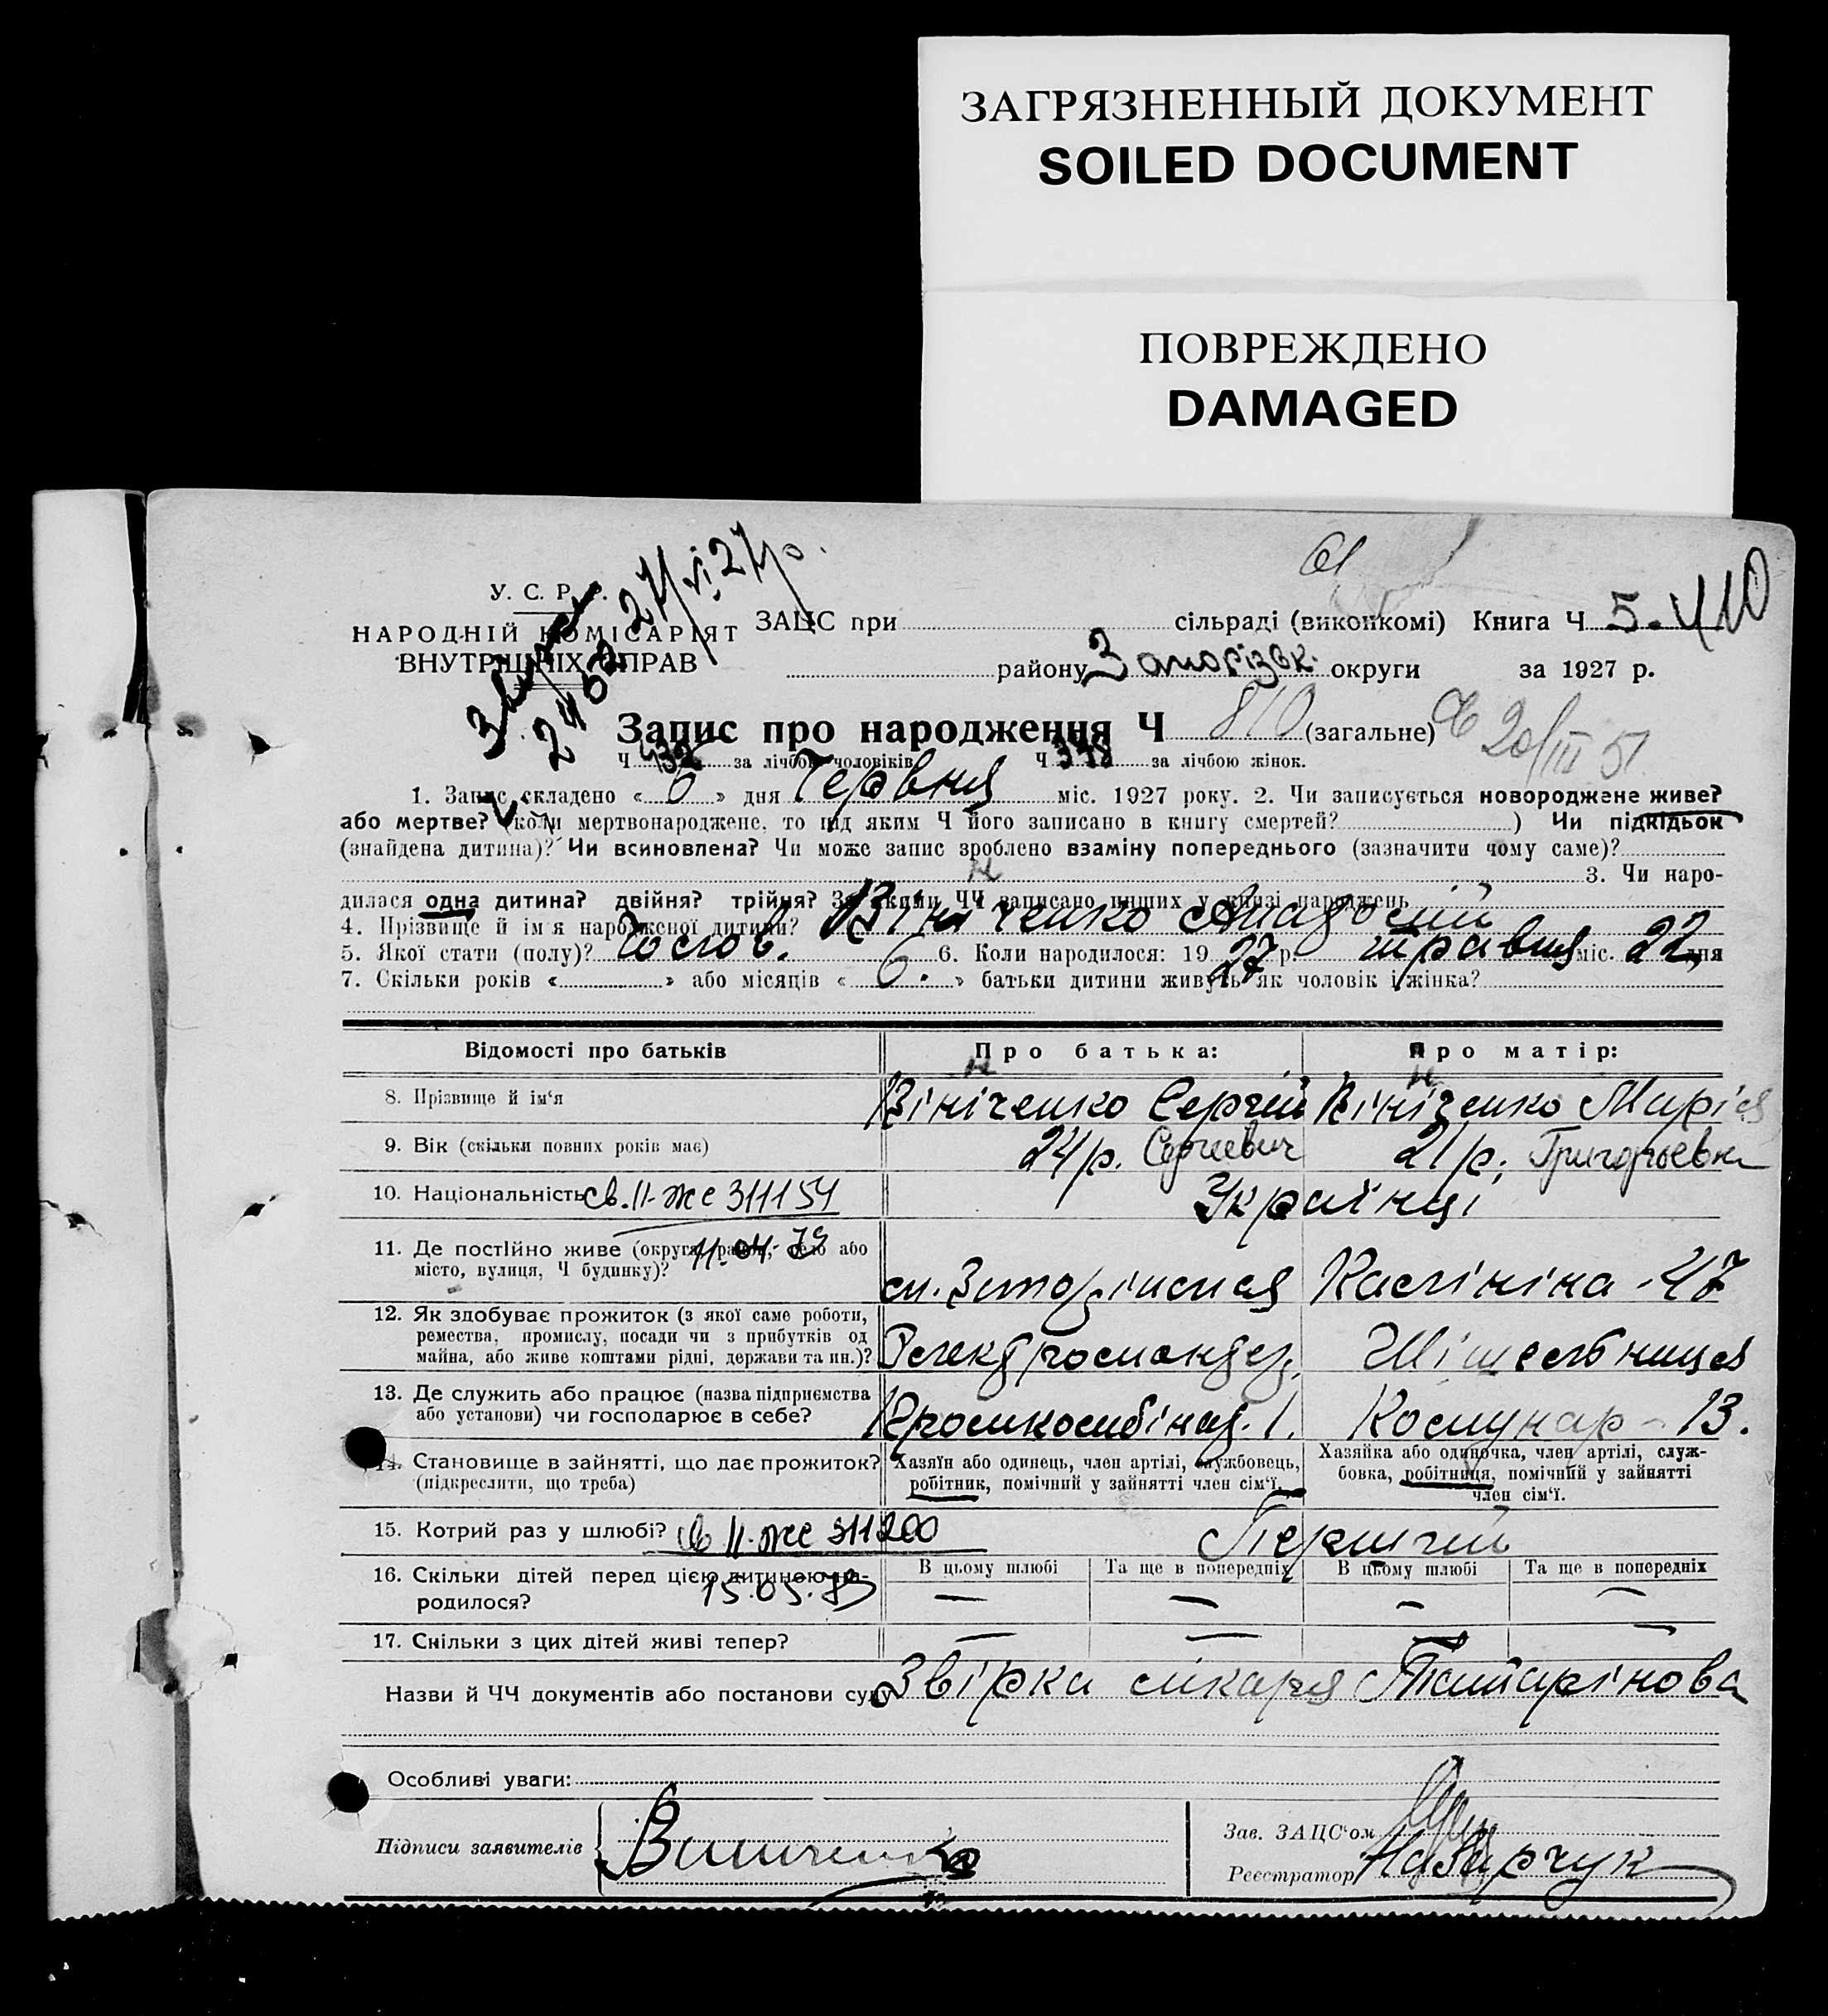 ЗАГРЯЗНЕННЫЙ ДОКУМЕНТ
SOILED DOCUMENT
ПОВРЕЖДЕНО
DAMAGED
У. С. Р. Р.
НАРОДНІЙ КОМІСАРІЯТ
ВНУТРІШНІХ СПРАВ
27/VI 27 р.
ЗАЦС при сільраді (виконкомі) Книга Ч 5. 410
району Запорізьк. округи за 1927 р.
Запис про народження Ч 810 (загальне)
20/III 51
Ч 432 за лічбою чоловіків Ч 378 за лічбою жінок.
1. Запис складено « 6 » дня Червня міс. 1927 року. 2. Чи записується новороджене живе?
або мертве? (коли мертвонароджене, то під яким Ч його записано в книгу смертей? ) Чи підкідьок
(знайдена дитина)? Чи всиновлена? Чи може запис зроблено взаміну попереднього (зазначити чому саме)?
3. Чи наро-
дилася одна дитина? двійня? трійня? За якими ЧЧ записано инших у книзі народжень
4. Прізвище й ім'я народженої дитини? Вініченко Анатолій
5. Якої стати (полу)? Чолов. 6. Коли народилося: 19 27 р. травня міс. 22 дня
7. Скільки років « » або місяців « 6. » батьки дитини живуть як чоловік і жінка?
Відомості про батьків Про батька: Про матір:
н н
8. Прізвище й ім'я Вініченко Сергій Вініченко Марія
9. Вік (скільки повних років має) 24 р. Сергеевич 21 р. Григорьевна
10. Національність св. II-ЖС 311154 Українці
11. Де постійно живе (округа, район, село або
місто, вулиця, Ч будинку)? 11.04.79 Калініна - 47
12. Як здобуває прожиток (з якої саме роботи,
ремества, промислу, посади чи з прибутків од
майна, або живе коштами рідні, держави та ин.)?
13. Де служить або працює (назва підприємства
або установи) чи господарює в себе? Промкомбінат. 1. Комунар - 13.
14. Становище в зайнятті, що дає прожиток?
(підкреслити, що треба)
Хазяїн або одинець, член артілі, службовець,
робітник, помічний у зайнятті член сім'ї.
Хазяйка або одиночка, член артілі, служ-
бовка, робітниця, помічний у зайнятті
член сім'ї.
15. Котрий раз у шлюбі? св II-ЖС 311200 Перший
16. Скільки дітей перед цією дитиною на-
родилося? 15.05.79
В цьому шлюбі Та ще в попередніх В цьому шлюбі Та ще в попередніх
— — — —
17. Скільки з цих дітей живі тепер? — — — —
Назви й ЧЧ документів або постанови суду Звірка лікаря
Особливі уваги:
Підписи заявителів Виниченко
Зав. ЗАЦС'ом
Реєстратор Назарчук